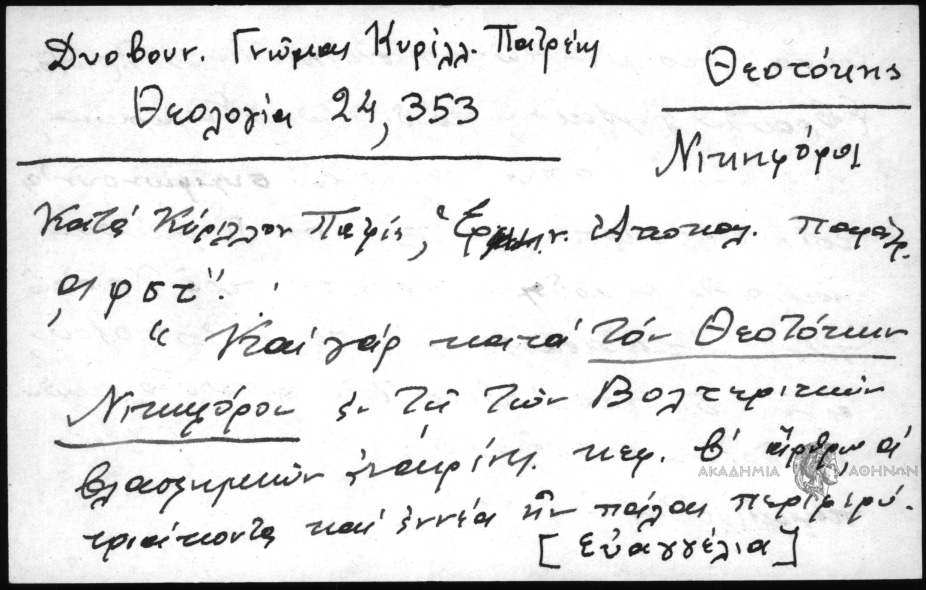 Δυοβουν. Γνῶμαι Κυρίλλ. Πατρέως
Θεολογία 24, 353
Θεοτόκης
Νικηφόρος
Κατά Κύριλλον Πατρέα, Ἑρμην. Ἀποκαλ. παρὰ
"Καί γάρ κατά τόν Θεοτόκην
Νικηφόρον ἐν τῇ τῶν Βολτερικῶν
βλασφημιῶν ἀνακρίσει κεφ. β' ἄρθρῳ α'
τριάκοντα καί ἐννέα ἦν πάλαι
[Εὐαγγέλια]
ΑΚΑΔΗΜΙΑ ΑΘΗΝΩΝ